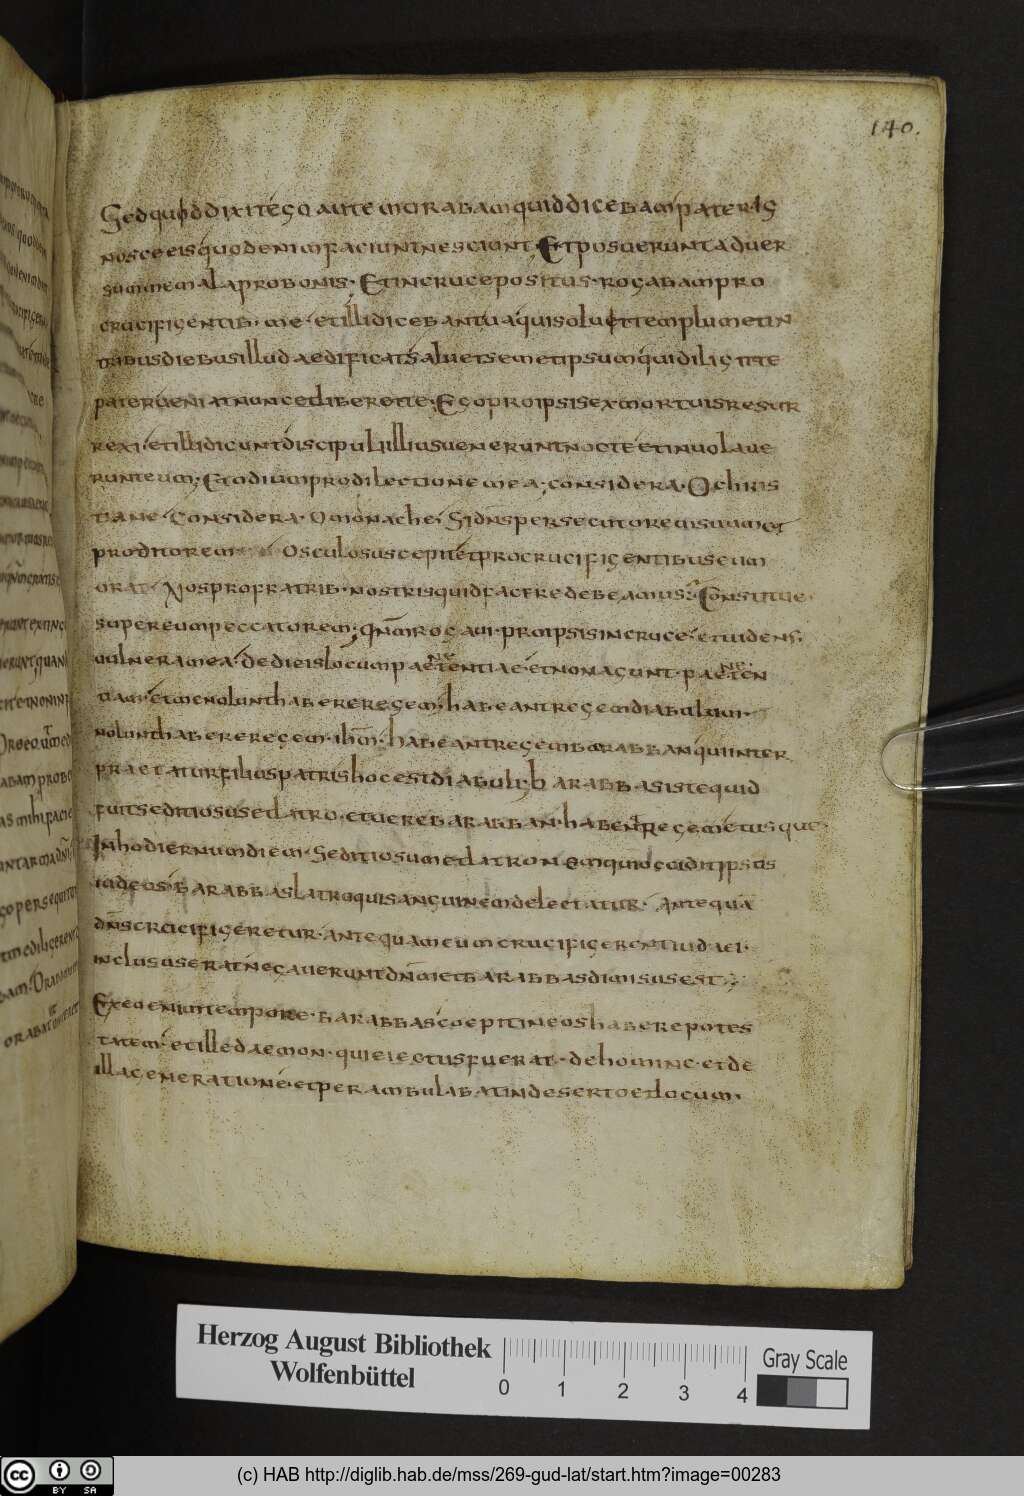 140.
Sed quod dixit ego autem orabam quid dicebam pater ig
nosce eis quod enim faciunt nesciunt; Et posuerunt aduer
sum me mala pro bonis. Et in cruce positus. rogabam pro
crucifigentib. me. et illi dicebant uaqui soluet templum et in
tribus diebus illud aedificat saluet semetipsum quidiligit te
pater ueniat nunc et liberet te. Ego pro ipsis ex mortuis resur
rexi. et illi dicunt discipuli illius uenerunt nocte et inuolaue
runt eum; Et odium pro dilectione mea; considera. O chris
tiane. Considera. O monache. Si dn̄s persecutorem suum et
proditorem osculo suscepit et pro crucifigentibus eum
orat. Nos pro fratrib. nostris quid facere debeamus; Constitue
super eum peccatorem; Qn̄m rogaui. pro ipsis in cruce. et uidens.
uulnera mea. dedi eis locum paenitentiae. et non agunt. paeniten
tiam. et me nolunt habere regem. habeant regem diabulum.
Nolunt habere regem. ihm̄. habeant regem barabban qui inter
praetatur filius patris hoc est diabuli; barabbas iste quid
fuit seditiosus et latro. et uere barabban. habent regem et usque
In hodiernum diem. Seditiosum et latronem qui occidit ipsos
iudeos. Barabbas latro qui sanguinem delectatur. Antequā
dn̄s crucifigeretur. antequam eum crucifigerent iudaei.
inclusus erat negauerunt dn̄m et barabbas dimisus est;
Ex eo enim tempore. barabbas coepit in eos habere potes
tatem. et ille daemon. qui eiectus fuerat. de homine. et de
illa generatione. et perambulabat in deserto et locum.
Herzog August Bibliothek
Wolfenbüttel
0 1 2 3 4
Gray Scale
cc BY SA
(c) HAB http://diglib.hab.de/mss/269-gud-lat/start.htm?image=00283